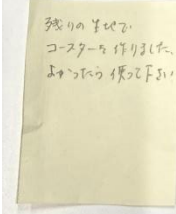 残りの生地で
コースターを作りました、
よかったら使って下さい